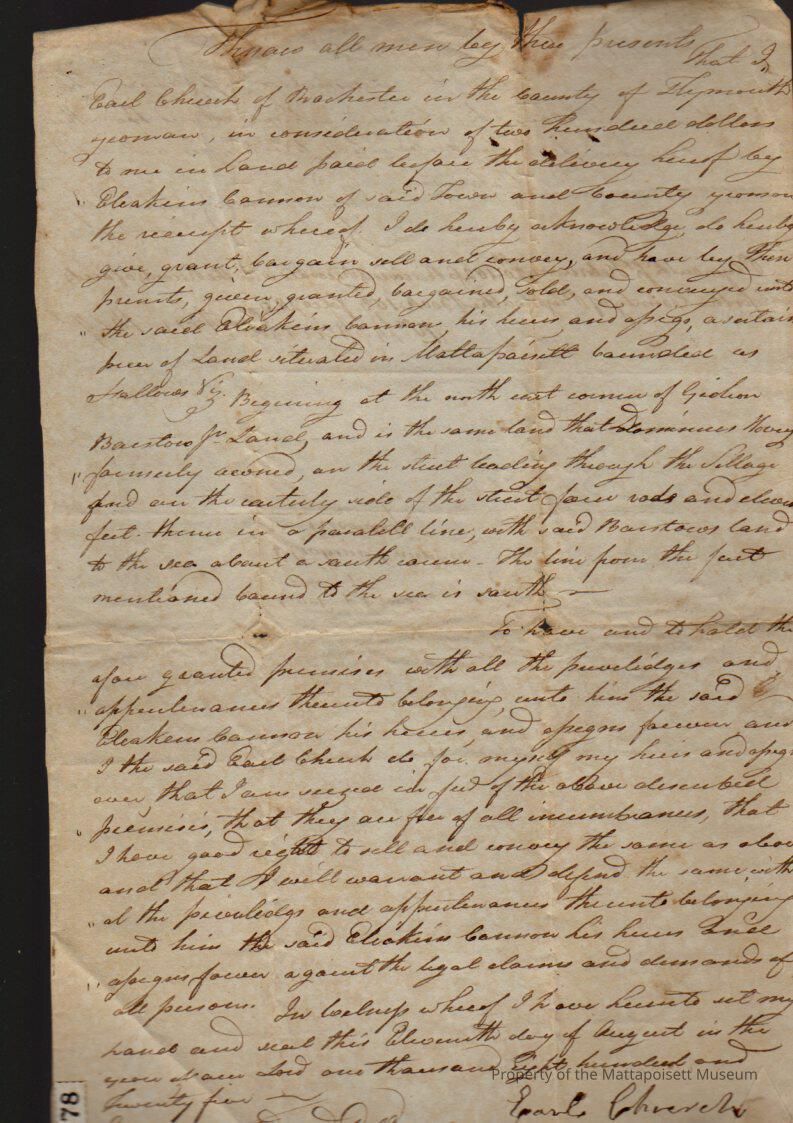 Know all men by these presents that I
Earl Church of Rochester in the County of Plymouth
yeoman, in consideration of two hundred dollars
to me in hand paid before the delivery hereof by
Eleakim Cannon of said Town and County yeoman
the receipt whereof I do hereby acknowledge, do hereby
give, grant, bargain sell and convey, and have by these
presents, given, granted, bargained, sold, and conveyed unto
the said Eleakim Cannon, his heirs and assigs, a certain
piece of Land situated in Mattapoisett bounded as
Follows Viz. Begining at the north east corner of Gideon
Barstow Jr. Land, and is the same land that Dominicus Hovey
formerly owned, on the street leading through the Village
and on the easterly side of the street four rods and eleven
feet. thence in a paralell line, with said Barstows land
to the sea about a south course - The line from the first
mentioned bound to the sea is south
To have and to hold the
afore granted premises with all the privelidges and
appurtenances thereunto belonging, unto him the said
Eleakim Cannon his heirs, and assigns forever and
I the said Earl Church do for myself my heirs and assigns
over, that I am seized in fee of the above described
premises, that they are free of all incumbrances, that
I have good right to sell and convey the same as above
and that I will warrant and defend the same with
al the priviledgs and appurtenances thereunto belonging
unto him the said Eleakim Cannon his heirs and
assigns forever against the legal claims and demands of
all persons. In witness whereof I have hereunto set my
hand and seal this Eleventh day of August in the
year of our Lord one thousand Eight hundred and
Twenty five
Earl Church
78
Property of the Mattapoisett Museum